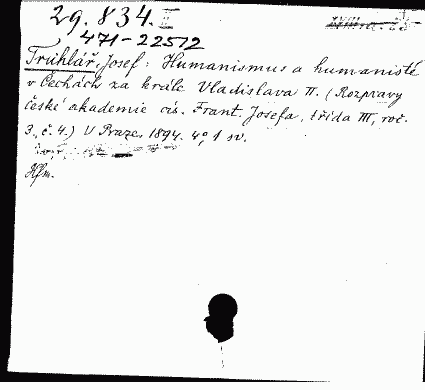 29.834.II
471-22572
Truhlář, Josef: Humanismus a humanisté
v Čechách za krále Vladislava II. (Rozpravy
české akademie cís. Frant. Josefa, třída III, roč.
3., č. 4.) V Praze, 1894. 4°, 1 sv.
Hfm.